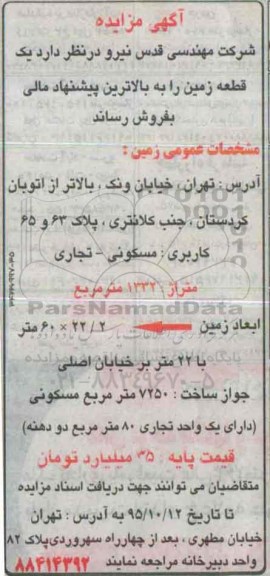 آگهی مزایده
شرکت مهندسی قدس نیرو درنظر دارد یک
قطعه زمین را به بالاترین پیشنهاد مالی
بفروش رساند
مشخصات عمومی زمین :
آدرس : تهران ، خیابان ونک ، بالاتر از اتوبان
کردستان ، جنب کلانتری ، پلاک ۶۳ و ۶۵
کاربری : مسکونی - تجاری
متراژ : ۱۳۳۲ مترمربع
ParsNamadData
ابعاد زمین ۲۲/۲ × ۶۰ متر
با ۲۲ متر بر خیابان اصلی
جواز ساخت : ۷۲۵۰ متر مربع مسکونی
(دارای یک واحد تجاری ۸۰ متر مربع دو دهنه)
قیمت پایه : ۳۵ میلیارد تومان
متقاضیان می توانند جهت دریافت اسناد مزایده
تا تاریخ ۹۵/۱۰/۱۲ به آدرس : تهران
خیابان مطهری ، بعد از چهارراه سهروردی پلاک ۸۲
واحد دبیرخانه مراجعه نمایند ۸۸۴۱۴۳۹۲